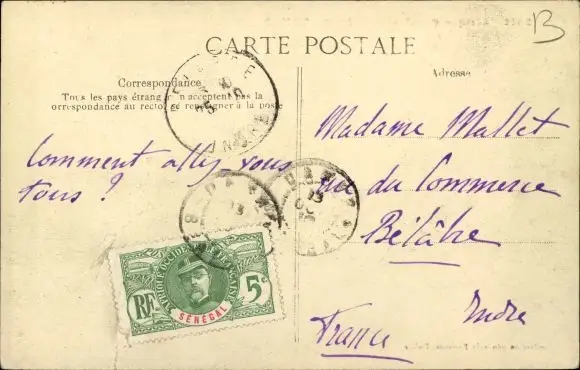 B
CARTE POSTALE
Correspondance
Tous les pays étrangers n'acceptent pas la
correspondance au recto, se renseigner à la poste
Adresse
Comment allez vous
tous ?
Madame Mallet
rue du Commerce
Bélâbre
Indre
France
AFRIQUE OCCIDENTALE FRANÇAISE
RF
5c
SÉNÉGAL
INDRE
DAKAR
DAKAR